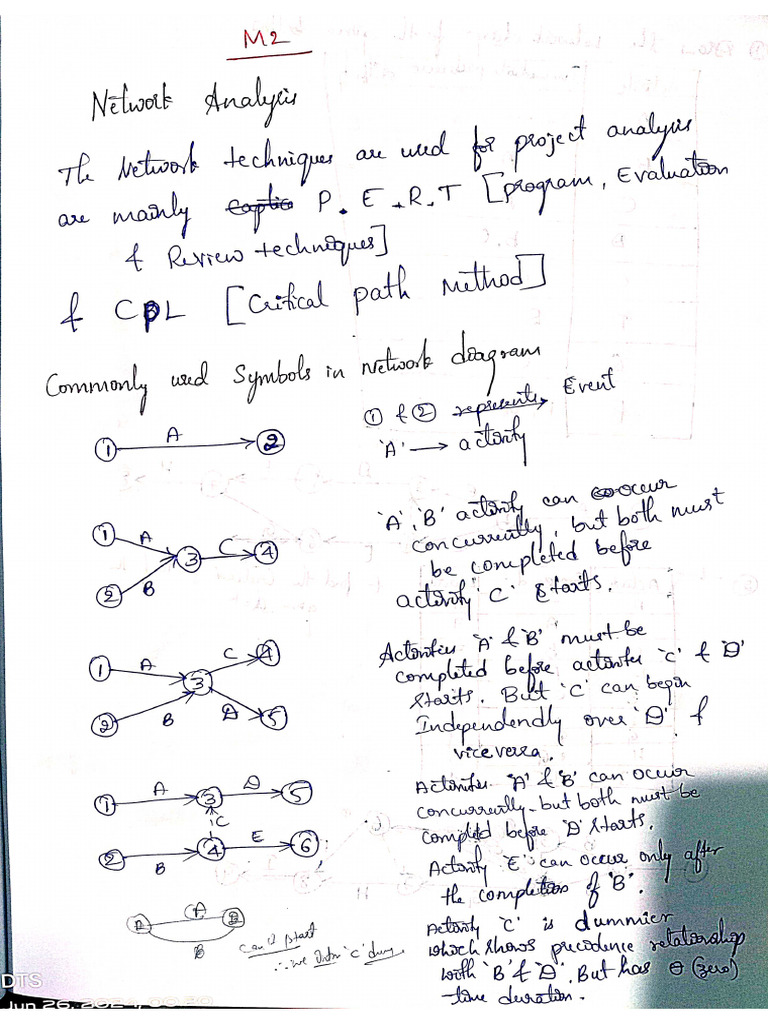 M2
Network Analysis
The Network techniques are used for project analysis
are mainly P. E. R. T [program, Evaluation
& Review techniques]
& CPL [Critical path Method]
Commonly used Symbols in network diagram
1 A 2
① & ② represents Event
'A' → activity
1 A 3 C 4
2 B
'A', 'B' activity can occur
concurrently, but both must
be completed before
activity 'C' starts.
1 A 3 C 4
2 B D 5
Activities 'A' & 'B' must be
completed before activities 'C' & 'D'
starts. But 'C' can begin
Independendly over 'D' &
viceversa.
1 A 3 D 5
C
2 B 4 E 6
Activities 'A' & 'B' can occur
concurrently but both must be
complted before 'D' starts.
Activity 'E' can occur only after
the completion of 'B'.
Activity 'C' is dummier
which shows precedence relationship
with 'B' & 'D'. But has 0 (zero)
time duration.
A
B
start
∴ we 'C'
DTS
Jun 26, 2024, 00:20